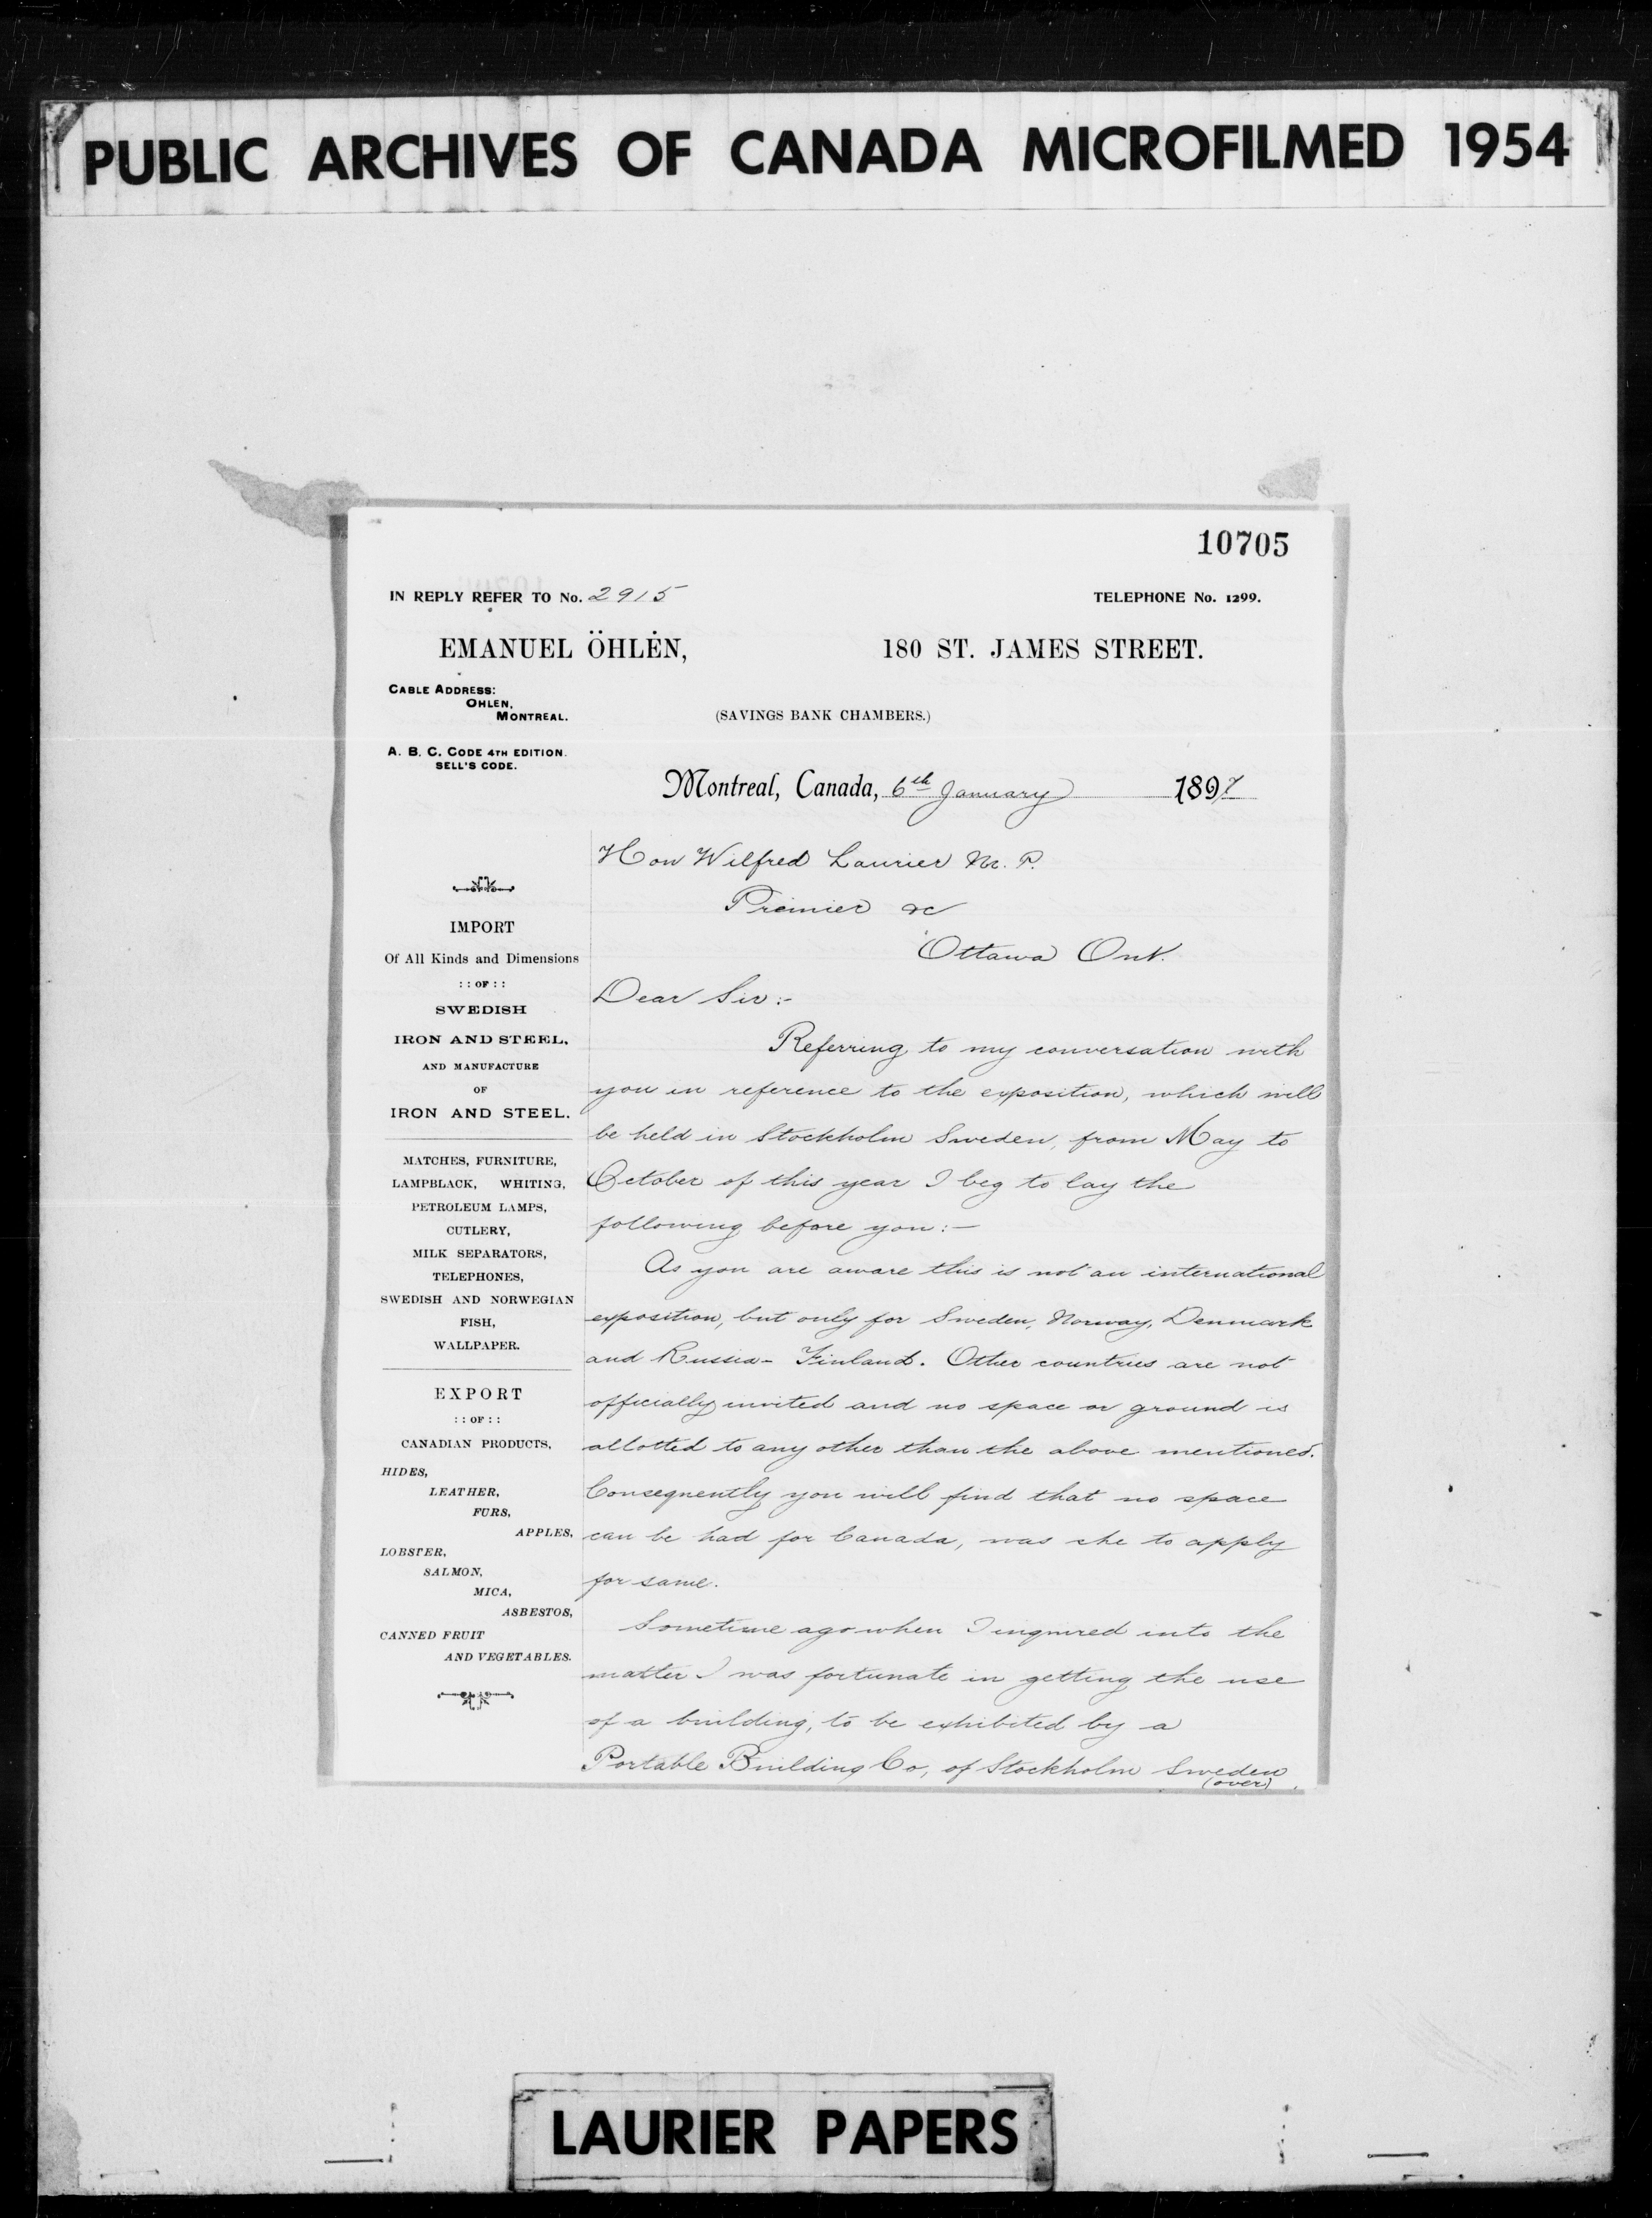 PUBLIC ARCHIVES OF CANADA MICROFILMED 1954
10705
IN REPLY REFER TO No. 2915
TELEPHONE No. 1299.
EMANUEL ÖHLĖN,
180 ST. JAMES STREET.
CABLE ADDRESS:
OHLEN,
MONTREAL.
(SAVINGS BANK CHAMBERS.)
A. B. C. CODE 4TH EDITION.
SELL'S CODE.
Montreal, Canada, 6th January 1897
IMPORT
Of All Kinds and Dimensions
: : OF : :
SWEDISH
IRON AND STEEL,
AND MANUFACTURE
OF
IRON AND STEEL.
MATCHES, FURNITURE,
LAMPBLACK, WHITING,
PETROLEUM LAMPS,
CUTLERY,
MILK SEPARATORS,
TELEPHONES,
SWEDISH AND NORWEGIAN
FISH,
WALLPAPER.
EXPORT
: : OF : :
CANADIAN PRODUCTS,
HIDES,
LEATHER,
FURS,
APPLES,
LOBSTER,
SALMON,
MICA,
ASBESTOS,
CANNED FRUIT
AND VEGETABLES.
Hon Wilfred Laurier M. P.
Premier &c
Ottawa Ont.
Dear Sir:-
Referring to my conversation with
you in reference to the exposition, which will
be held in Stockholm Sweden, from May to
October of this year I beg to lay the
following before you:-
As you are aware this is not an international
exposition, but only for Sweden, Norway, Denmark
and Russia- Finland. Other countries are not
officially invited and no space or ground is
allotted to any other than the above mentioned.
Consequently you will find that no space
can be had for Canada, was she to apply
for same.
Sometime ago when I inquired into the
matter I was fortunate in getting the use
of a building, to be exhibited by a
Portable Building Co, of Stockholm Sweden
(over)
LAURIER PAPERS